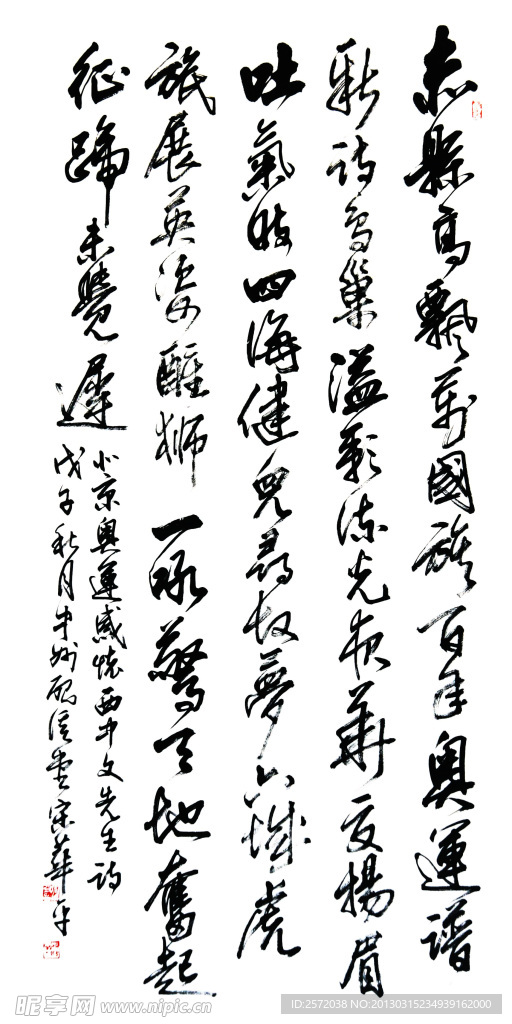 赤縣高飄萬國旗百年奧運譜
新詩鳥巢溢彩流光夜華夏揚眉
吐氣時四海健兒尋故夢六城虎
旅展英姿醒獅一吼驚天地奮起
征蹄未覺遲
北京奧運感懷西中文先生詩
戊子秋月中州信堂宋華平
昵享网 www.nipic.cn
ID:2572038 NO:20130315234939162000